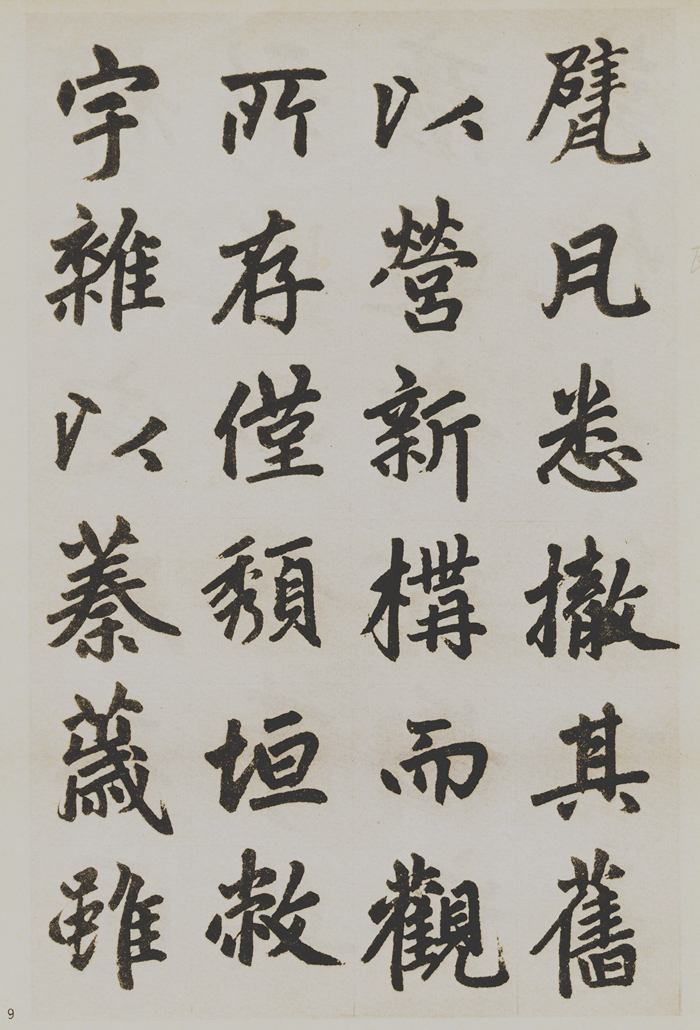 甓凡悉撤其舊
以營新構而觀
所存僅頽垣敝
宇雜以蓁薉雖
9